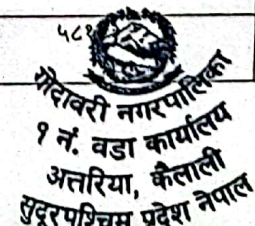 ५८१
गोदावरी नगरपालिका
१ नं. वडा कार्यालय
अत्तरिया, कैलाली
सुदूरपश्चिम प्रदेश नेपाल